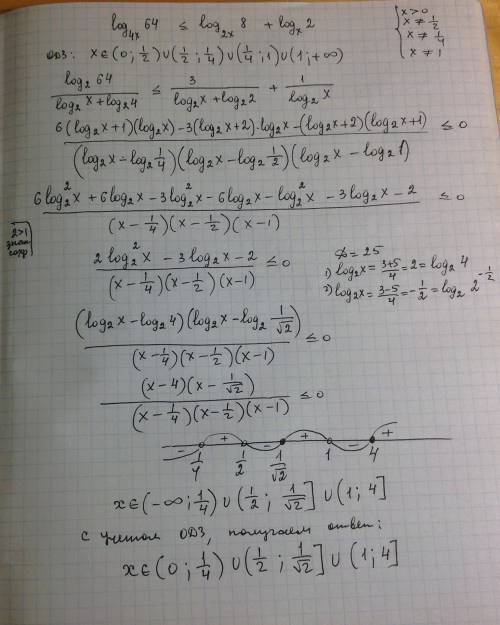 log₄ₓ 64 ≤ log₂ₓ 8 + logₓ 2
{ x>0
x≠1/2
x≠1/4
x≠1
ОДЗ: x∈(0; 1/2)∪(1/2; 1/4)∪(1/4; 1)∪(1; +∞)
log₂64/(log₂x+log₂4) ≤ 3/(log₂x+log₂2) + 1/log₂x
(6(log₂x+1)(log₂x)-3(log₂x+2)·log₂x-(log₂x+2)(log₂x+1))/((log₂x-log₂ 1/4)(log₂x-log₂ 1/2)(log₂x-log₂1)) ≤ 0
(6log₂²x+6log₂x-3log₂²x-6log₂x-log₂²x-3log₂x-2)/((x-1/4)(x-1/2)(x-1)) ≤ 0
2>1
знак
сохр
(2log₂²x-3log₂x-2)/((x-1/4)(x-1/2)(x-1)) ≤ 0
D=25
1) log₂x = (3+5)/4 = 2 = log₂4
2) log₂x = (3-5)/4 = -1/2 = log₂ 2^(-1/2)
((log₂x-log₂4)(log₂x-log₂ 1/√2))/((x-1/4)(x-1/2)(x-1)) ≤ 0
((x-4)(x-1/√2))/((x-1/4)(x-1/2)(x-1)) ≤ 0
- + - + - +
1/4 1/2 1/√2 1 4
x∈(-∞; 1/4)∪(1/2; 1/√2]∪(1; 4]
с учетом ОДЗ, получаем ответ:
x∈(0; 1/4)∪(1/2; 1/√2]∪(1; 4]